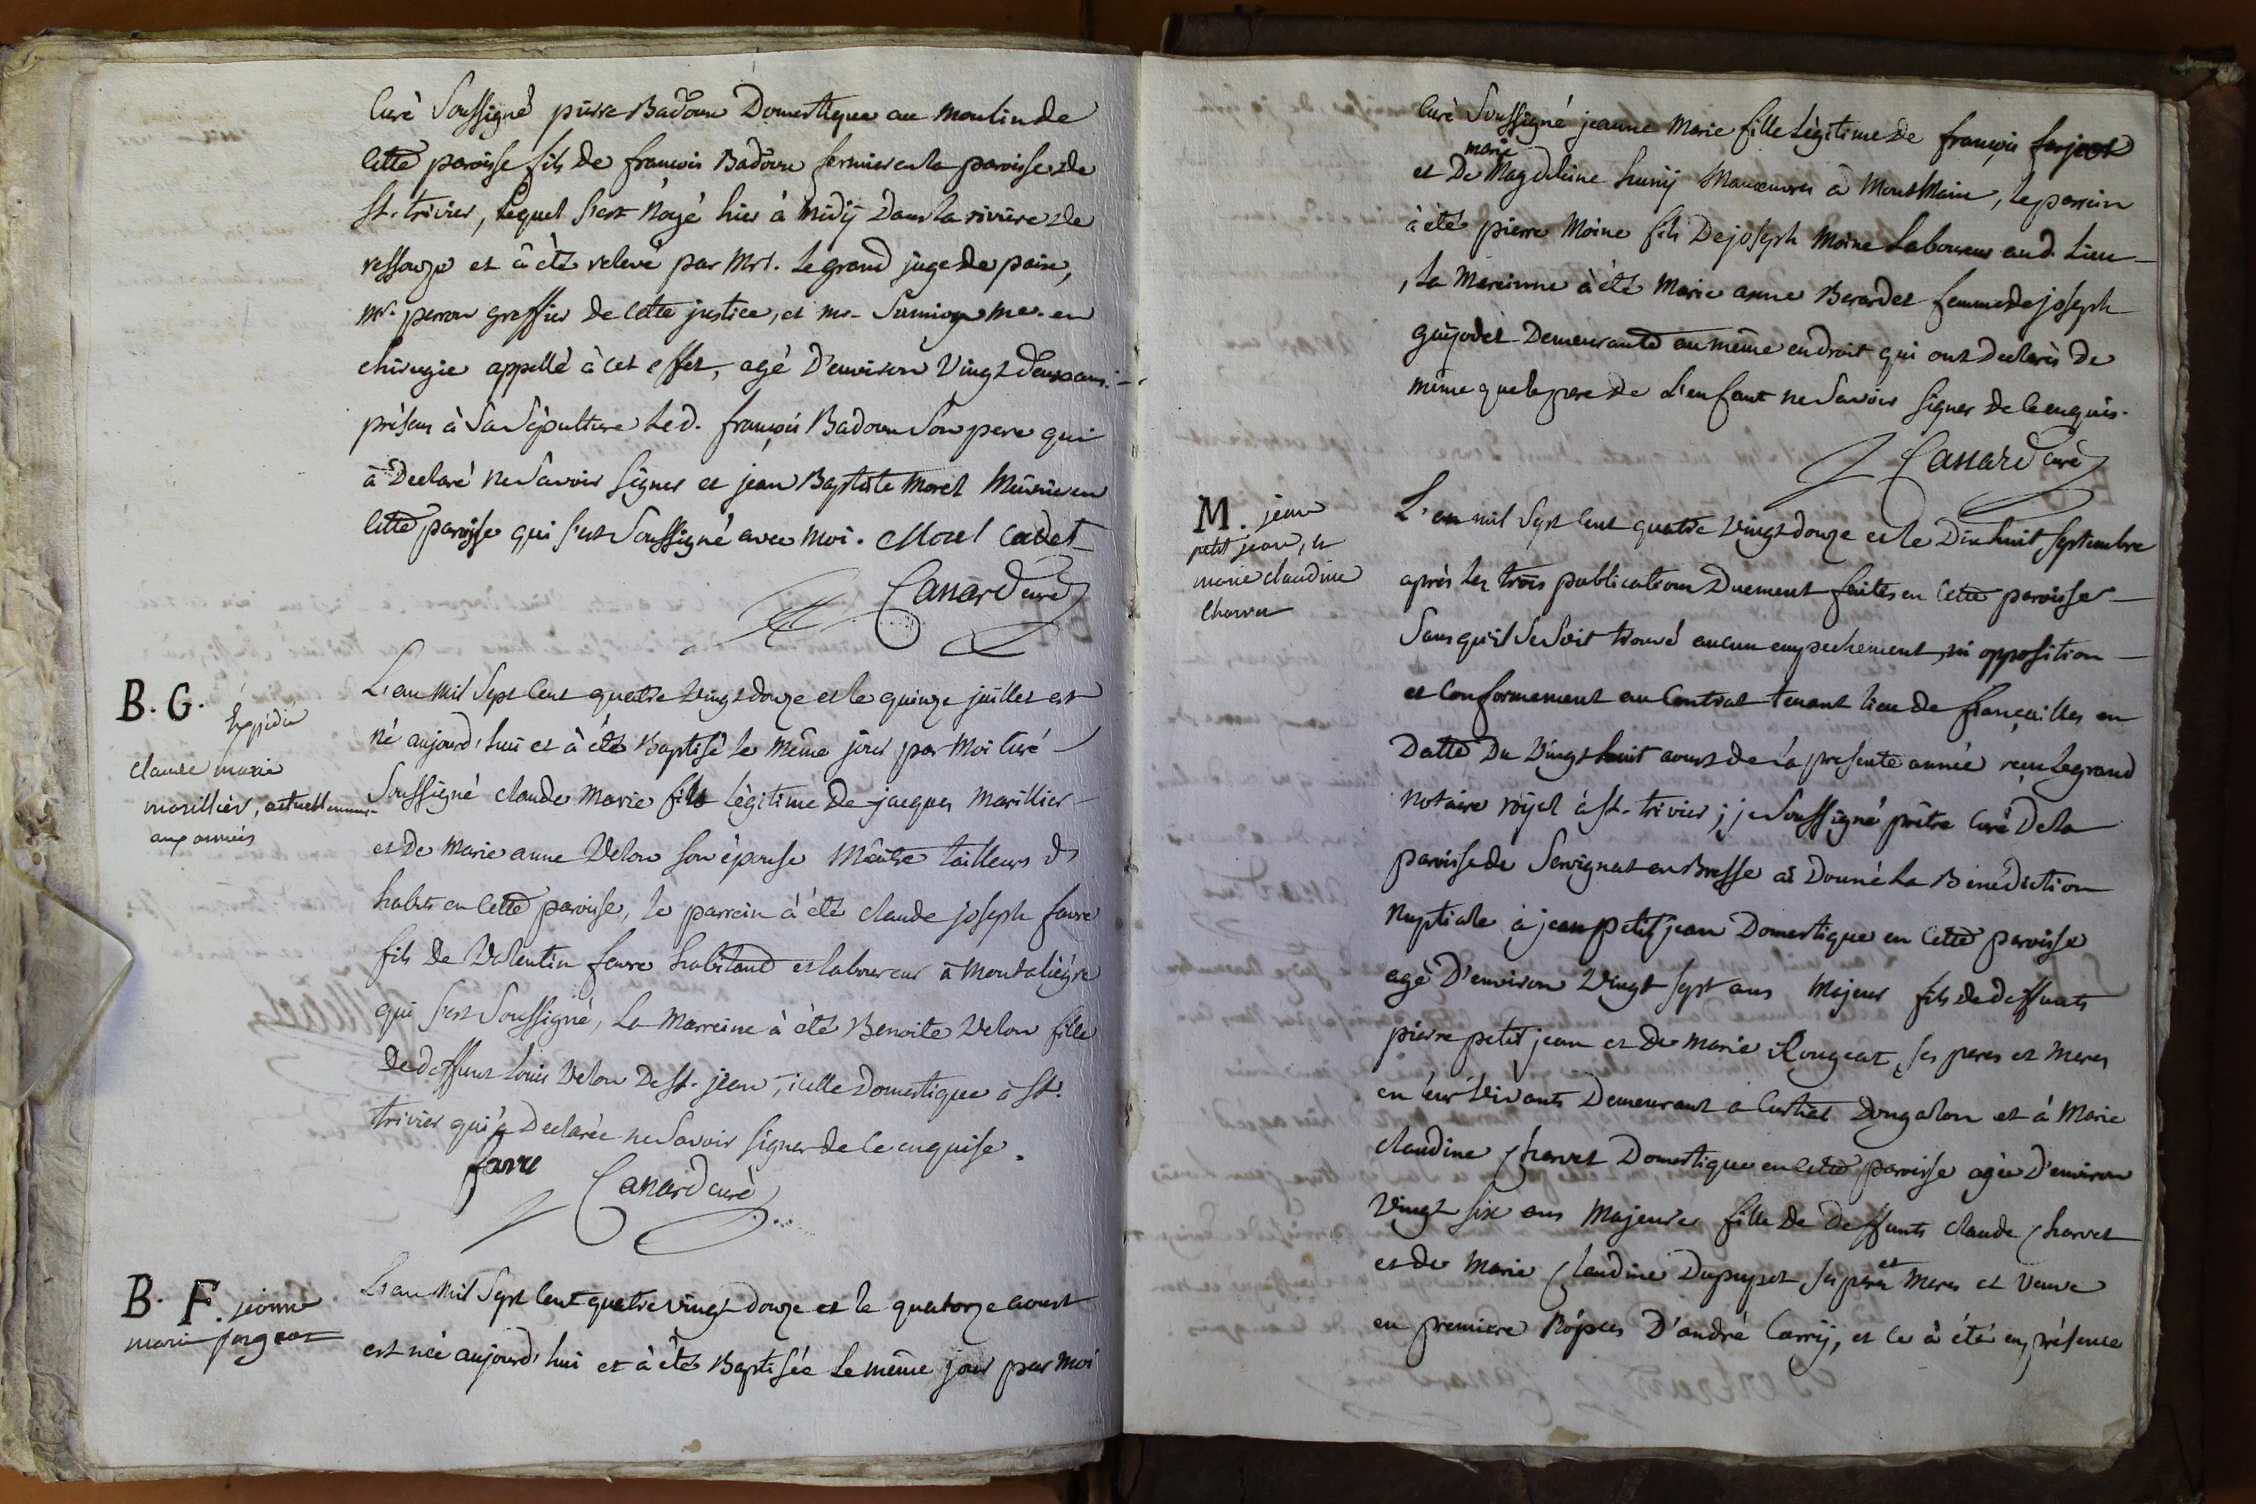 Curé Soussigné pierre Badoux Domestique au moulin de
Cette paroisse fils de francois Badoux fermier en la paroisse de
St. trivier, lequel s'est Noyé hier à midÿ Dans la riviere de
ressouze et à été relevé par Mr. Legrand juge de paix,
mr. perron greffier de Cette justice, et mr. me. en
chirugie appellé à cet effet, agé D'environ Vingt deux ans.
présens à Sa Sépulture Led. françois Badoux Son pere qui
à Declaré ne Savoir Signer et jean Baptiste Morel Meûnier en
Cette paroisse qui s'est Soussigné avec moi. Morel Cadet
Canard curé
B. G.
Expédié
claude marie
marillier, actuellement
aux armées
L'an mil Sept Cent quatre Vingt douze et le quinze juillet est
né aujourd'hui et à été Baptisé le même jour par Moi Curé
Soussigné claude Marie fils Légitime De jacques Marillier
et De Marie anne Velon son épouse Maître tailleurs d
habits en Cette paroisse, le parrein à été claude joseph favre
fils De Valentin favre habitand et laboureur à Montaliègre
qui s'est Soussigné, La Marreine à été Benoite Velon fille
De deffunt Louis Velon De St. jean, icelle Domestique à St.
trivier qui à Declarée ne Savoir Signer de Ce enquise.
favre
Canard curé
B. F. jeanne
marie forgeot
L'an Mil Sept Cent quatre vingt douze et le quatorze aoust
est née aujourd'hui et à été Baptisée Le même jour par Moi
Curé Soussigné jeanne Marie fille Légitime De françois
marie
et De Magdeleine Manoeuvres à MontMain, le parrein
à été pierre Moine fils De joseph Moine Laboureur aud. Lieu
, La Mareinne à été Marie anne Berardet femme de joseph
guÿodet Demeurante au même endroit qui ont Declarés de
même que le pere De L'enfant ne Savoir Signer de Ce enquis.
Canard curé
M. jean
petit jean, et
marie claudine
Charvet
L'an mil Sept Cent quatre Vingt douze et le Dix huit Septembre
après les trois publications Duement faites en Cette paroisse
Sans qu'il Se Soit trouvé aucun empechement ni opposition
et Conformement au Contrat tenant lieu de fiançailles en
Datte Du Vingt huit aoust de la presente année reçu Legrand
Notaire roÿal à St. trivier; je Soussigné prêtre Curé De la
paroisse de Servignat en Bresse ai Donné La Bénédiction
Nuptiale à jean petit jean Domestique en Cette paroisse
agé D'environ Vingt Sept ans Majeur fils de deffunts
pierre petit jean et de Marie Rougeat, ses peres et Meres
en leur Vivants Demeurant a Curtiat Dongalon et à Marie
claudine Charvet Domestique en Cette paroisse agée D'environ
Vingt Six ans Majeure fille De Deffunts claude Charvet
et de Marie Claudine Dupuÿset, ses peres et Meres et Veuve
en premiere Nôpces D'andré Carrÿ, et Ce à été en présence